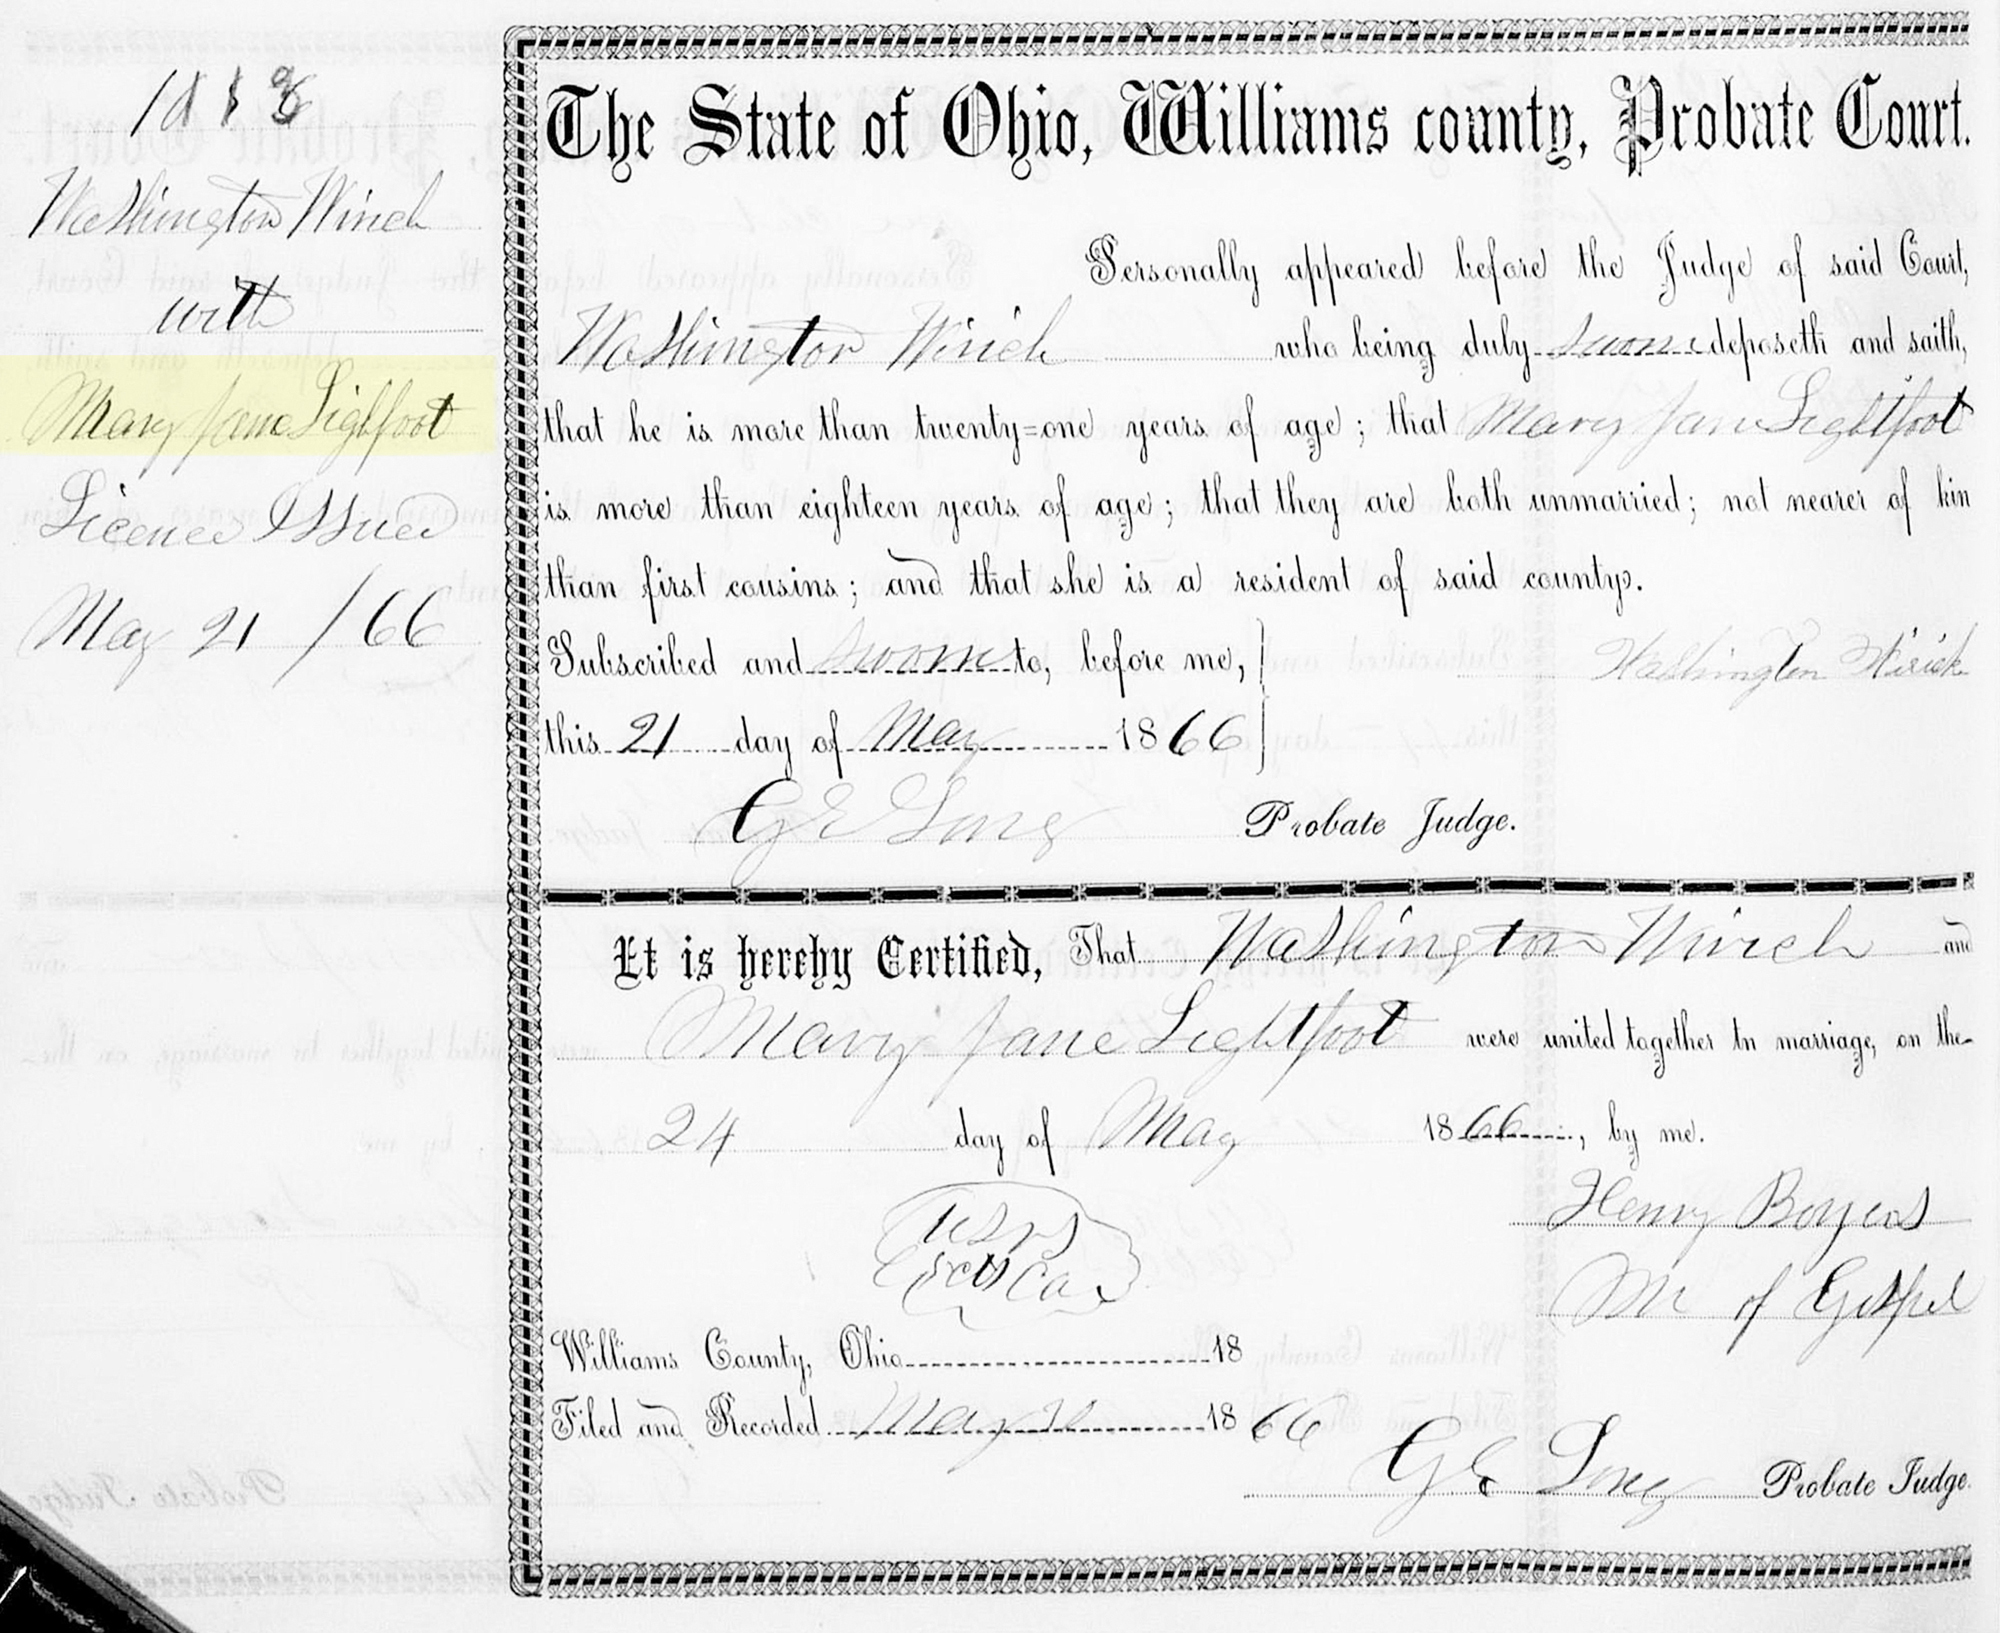 Washington Wirick
with
Mary Jane Lighfoot
Licence Issued
May 21 /66
The State of Ohio, Williams county, Probate Court.
Personally appeared before the Judge of said Court,
Washington Wirick who being duly sworn deposeth and saith,
that he is more than twenty=one years of age; that Mary Jane Lightfoot
is more than eighteen years of age; that they are both unmarried; not nearer of kin
than first cousins; and that she is a resident of said county.
Subscribed and sworn to, before me,
Washington Wirick
this 21 day of May 1866
G E Long Probate Judge.
It is hereby Certified, That Washington Wirick and
Mary Jane Lightfoot were united together in marriage, on the
24 day of May 1866, by me.
Henry Boyers
M of Gospel
Williams County, Ohio 18
Filed and Recorded May 1866
G E Long Probate Judge.